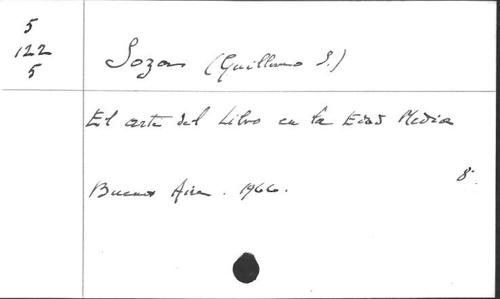 5
122
5
Sozos (Guillermo S.)
El arte del Libro en la Edad Media
8º
Buenos Aires. 1966.